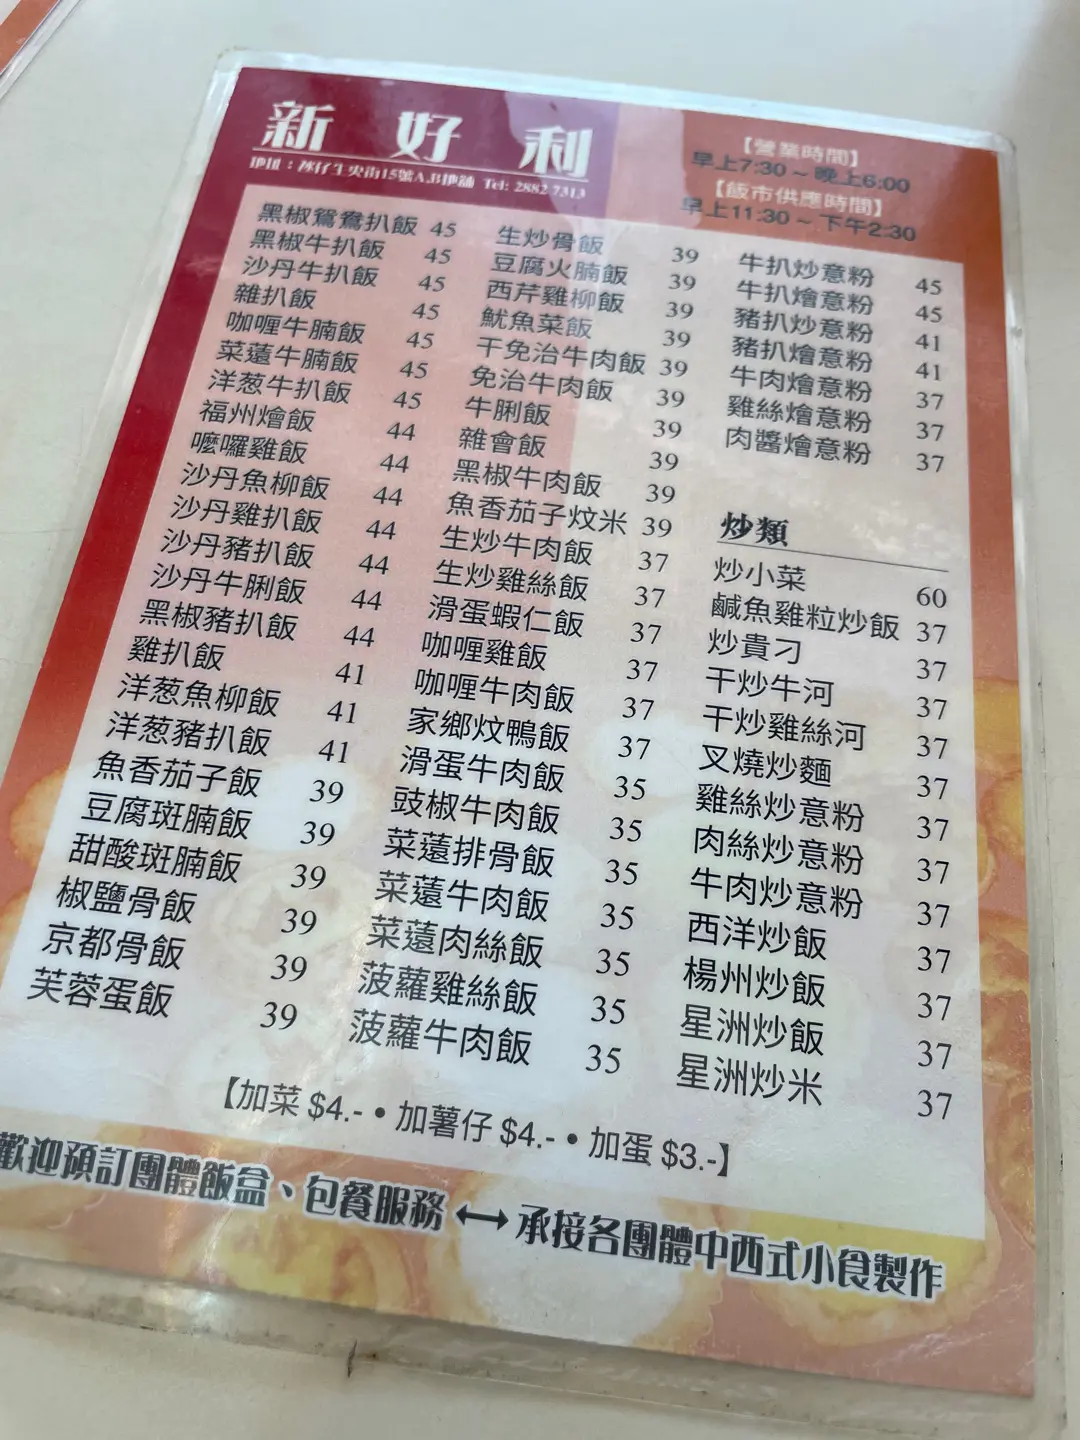 新好利
地址：氹仔生央街15號A,B地舖 Tel: 2882 7313
【營業時間】
早上7:30 ~ 晚上6:00
【飯市供應時間】
早上11:30 ~ 下午2:30
黑椒鴛鴦扒飯 45
黑椒牛扒飯 45
沙丹牛扒飯 45
雜扒飯 45
咖喱牛腩飯 45
菜薳牛腩飯 45
洋葱牛扒飯 45
福州燴飯 44
嚤囉雞飯 44
沙丹魚柳飯 44
沙丹雞扒飯 44
沙丹豬扒飯 44
沙丹牛脷飯 44
黑椒豬扒飯 44
雞扒飯 41
洋葱魚柳飯 41
洋葱豬扒飯 41
魚香茄子飯 39
豆腐斑腩飯 39
甜酸斑腩飯 39
椒鹽骨飯 39
京都骨飯 39
芙蓉蛋飯 39
生炒骨飯 39
豆腐火腩飯 39
西芹雞柳飯 39
魷魚菜飯 39
干免治牛肉飯 39
免治牛肉飯 39
牛脷飯 39
雜會飯 39
黑椒牛肉飯 39
魚香茄子炆米 39
生炒牛肉飯 37
生炒雞絲飯 37
滑蛋蝦仁飯 37
咖喱雞飯 37
咖喱牛肉飯 37
家鄉炆鴨飯 37
滑蛋牛肉飯 35
豉椒牛肉飯 35
菜薳排骨飯 35
菜薳牛肉飯 35
菜薳肉絲飯 35
菠蘿雞絲飯 35
菠蘿牛肉飯 35
牛扒炒意粉 45
牛扒燴意粉 45
豬扒炒意粉 41
豬扒燴意粉 41
牛肉燴意粉 37
雞絲燴意粉 37
肉醬燴意粉 37
炒類
炒小菜 60
鹹魚雞粒炒飯 37
炒貴刁 37
干炒牛河 37
干炒雞絲河 37
叉燒炒麵 37
雞絲炒意粉 37
肉絲炒意粉 37
牛肉炒意粉 37
西洋炒飯 37
楊州炒飯 37
星洲炒飯 37
星洲炒米 37
【加菜 $4.- • 加薯仔 $4.- • 加蛋 $3.-】
歡迎預訂團體飯盒、包餐服務 ↔ 承接各團體中西式小食製作